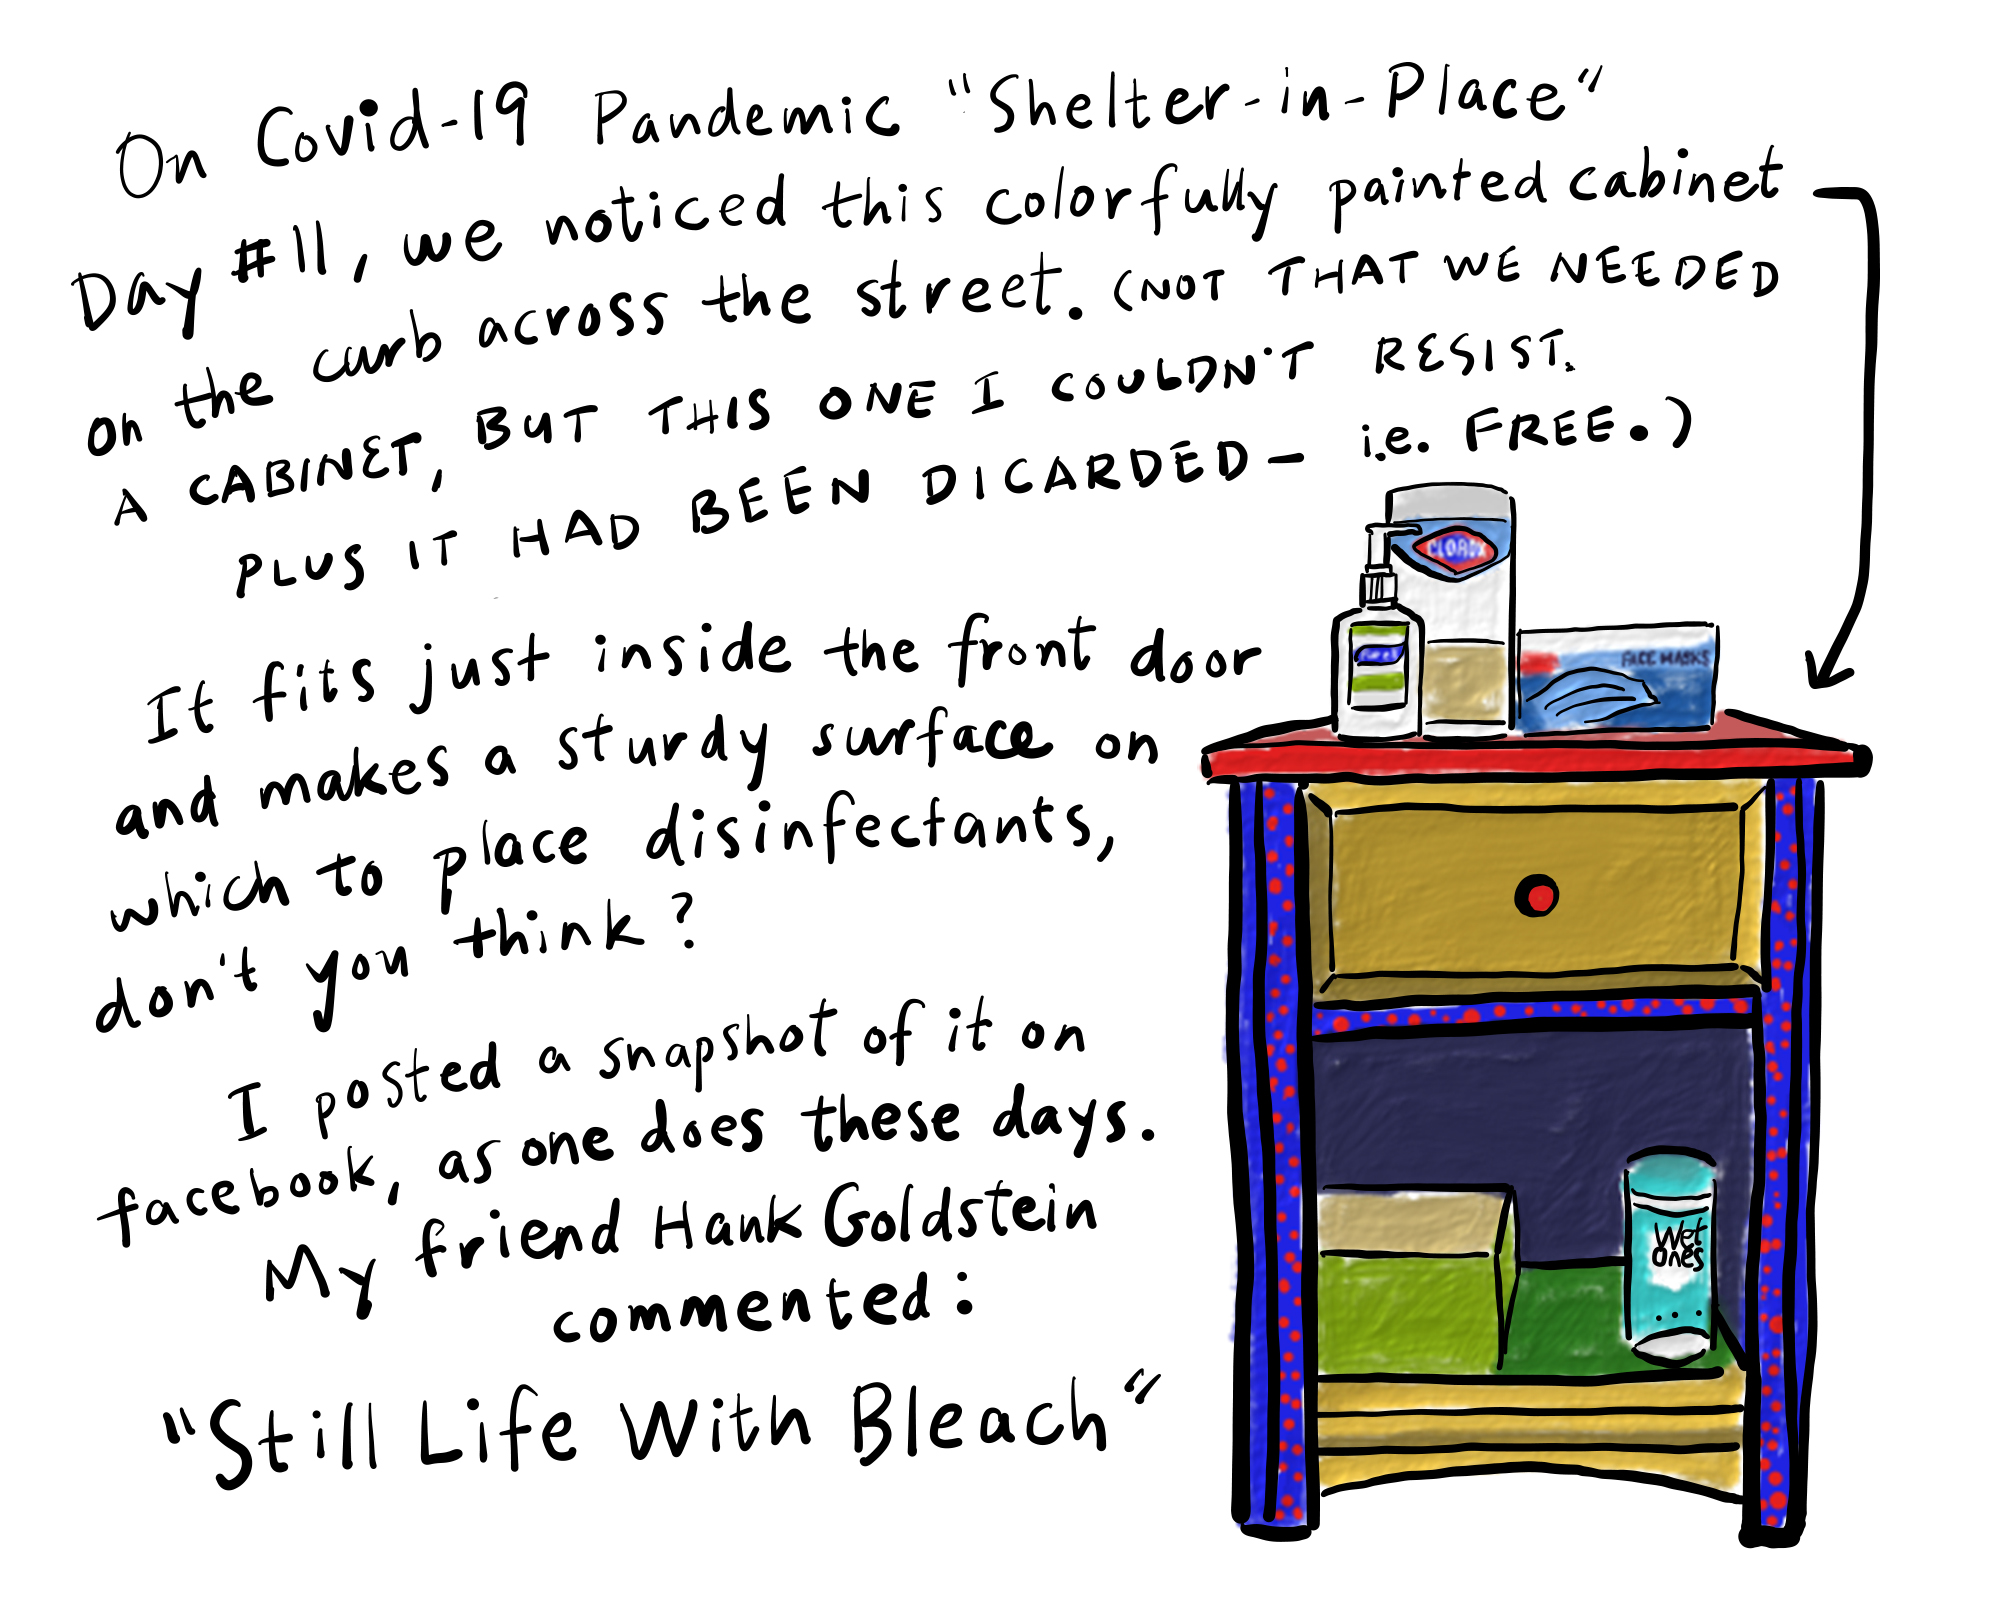 On Covid-19 Pandemic "Shelter-in-Place"
Day #11, we noticed this colorfully painted cabinet
on the curb across the street. (NOT THAT WE NEEDED
A CABINET, BUT THIS ONE I COULDN'T RESIST.
PLUS IT HAD BEEN DICARDED - i.e. FREE.)
It fits just inside the front door
and makes a sturdy surface on
which to place disinfectants,
don't you think?
I posted a snapshot of it on
facebook, as one does these days.
My friend Hank Goldstein
commented:
"Still Life With Bleach"
CLOROX
FACE MASKS
Wet
Ones